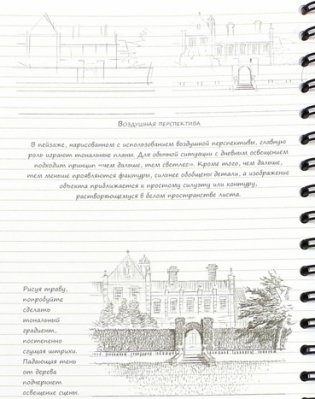 Воздушная перспектива
В пейзаже, нарисованном с использованием воздушной перспективы, главную
роль играют тональные планы. Для обычной ситуации с дневным освещением
подходит принцип «чем дальше, тем светлее». Кроме того, чем дальше,
тем меньше проявляются фактуры, сильнее обобщены детали, а изображение
объекта приближается к простому силуэту или контуру,
растворяющемуся в белом пространстве листа.
Рисуя траву,
попробуйте
сделать
тональный
градиент,
постепенно
сгущая штрихи.
Падающая тень
от дерева
подчеркнет
освещение сцены.